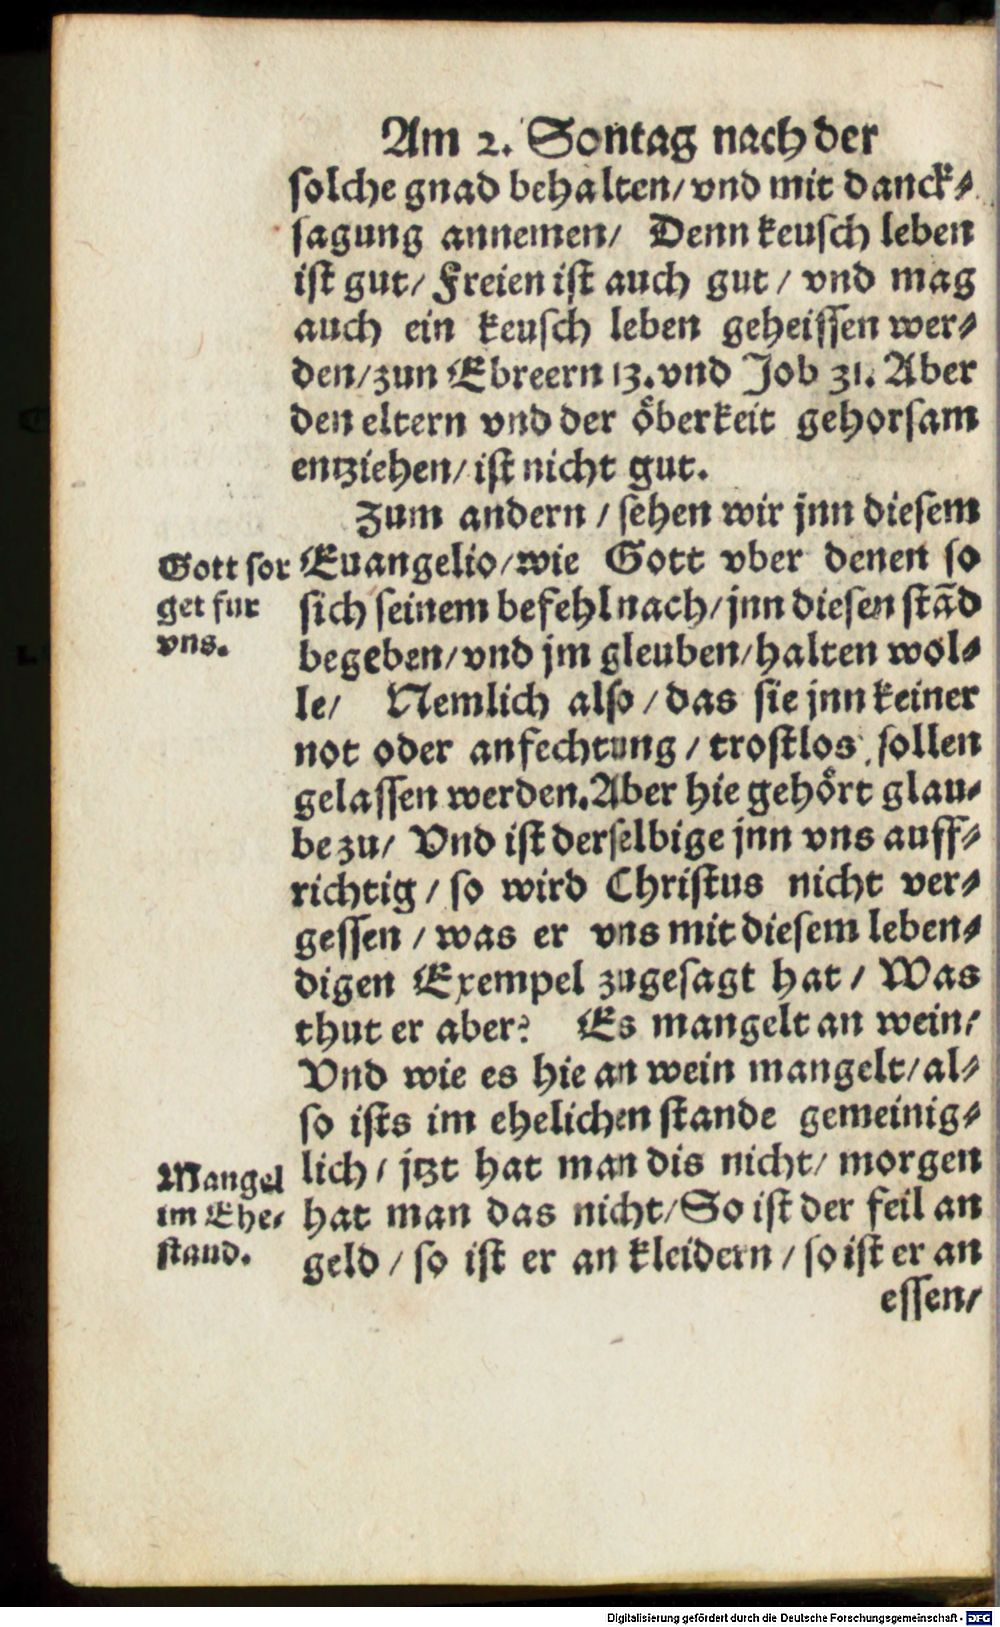 Am 2. Sontag nach der
solche gnad behalten/ vnd mit danck⸗
sagung annemen/ Denn keusch leben
ist gut/ Freien ist auch gut / vnd mag
auch ein keusch leben geheissen wer⸗
den/ zun Ebreern 13. vnd Job 31. Aber
den eltern vnd der öberkeit gehorsam
entziehen/ ist nicht gut.
Zum andern / sehen wir jnn diesem
Gott sor
get fur
vns.
Euangelio/ wie Gott vber denen so
sich seinem befehl nach/ jnn diesen stãd
begeben/ vnd jm gleuben/ halten wöl⸗
le/ Nemlich also / das sie jnn keiner
not oder anfechtung / trostlos sollen
gelassen werden. Aber hie gehört glau⸗
be zu/ Vnd ist derselbige jnn vns auff⸗
richtig / so wird Christus nicht ver⸗
gessen / was er vns mit diesem leben⸗
digen Exempel zugesagt hat / Was
thut er aber? Es mangelt an wein/
Vnd wie es hie an wein mangelt/ al⸗
so ists im ehelichen stande gemeinig⸗
Mangel
im Ehe⸗
stand.
lich / jtzt hat man dis nicht/ morgen
hat man das nicht/ So ist der feil an
geld / so ist er an kleidern / so ist er an
essen/
Digitalisierung gefördert durch die Deutsche Forschungsgemeinschaft - DFG